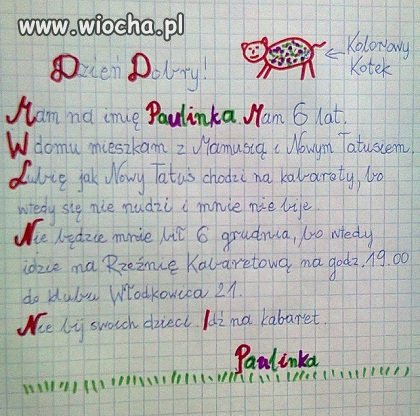 www.wiocha.pl
Dzień Dobry!
Kolorowy
Kotek
Mam na imię Paulinka. Mam 6 lat.
W domu mieszkam z Mamusią i Nowym Tatusiem.
Lubię jak Nowy Tatuś chodzi na kabarety, bo
wtedy się nie nudzi i mnie nie bije.
Nie będzie mnie bił 6 grudnia, bo wtedy
idzie na Rzeźnię Kabaretową na godz. 19.00
do klubu Włodkowica 21.
Nie bij swoich dzieci. Idź na kabaret.
Paulinka